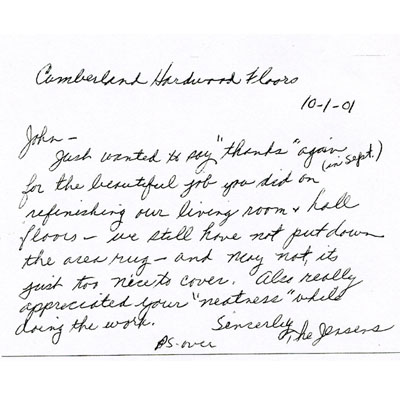 Cumberland Hardwood Floors
10-1-01
John -
Just wanted to say "thanks" again (in Sept.)
for the beautiful job you did on
refinishing our living room & hall
floors - we still have not put down
the area rug - and may not, its
just too nice to cover. Also really
appreciated your "neatness" while
doing the work. Sincerely, The Jensens
PS-over